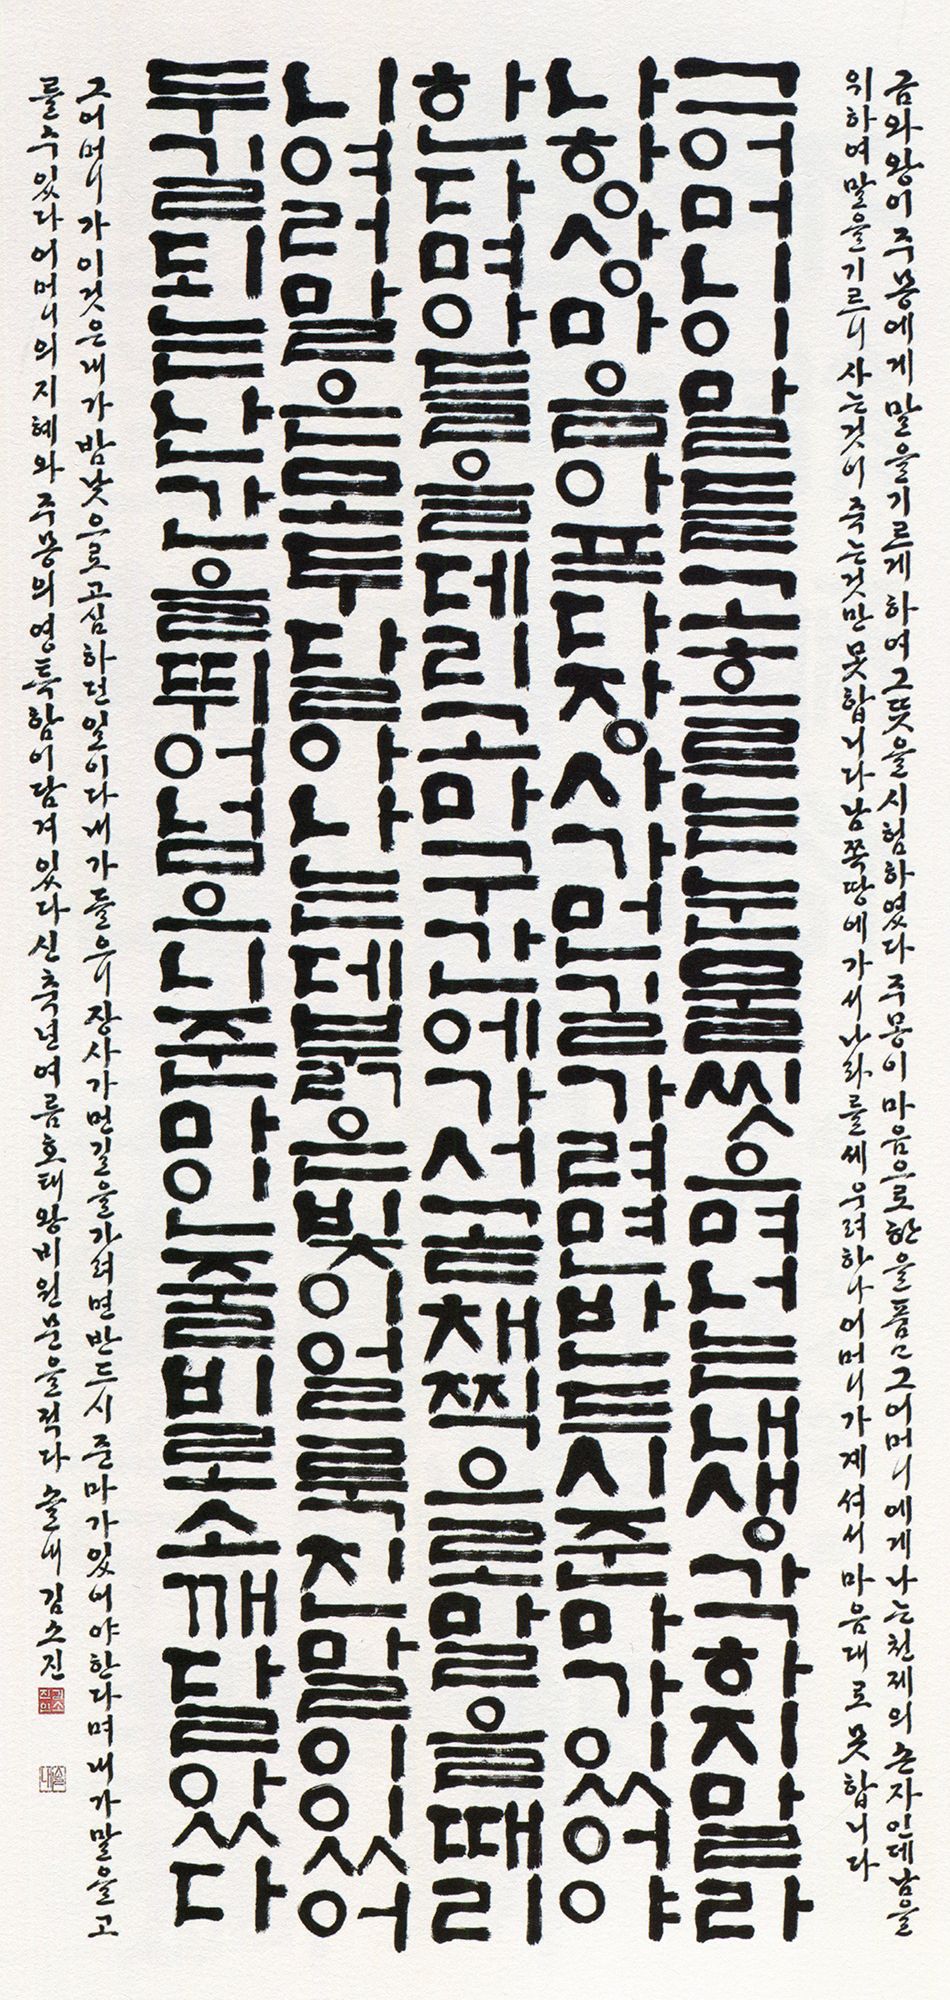 금와왕이 주몽에게 말을 기르게 하여 그 뜻을 시험하였다 주몽이 마음으로 한을 품고 그 어머니에게 나는 천제의 손자인데 남을
위하여 말을 기르니 사는 것이 죽는 것만 못합니다 남쪽땅에 가서 나라를 세우려하나 어머니가 계셔서 마음대로 못합니다
그 어머니 이 말 듣고 흐르는 눈물 씻으며 너는 내 생각하지 말라
나 항상 마음 아프다 장사가 먼길 가려면 반드시 준마가 있어야
한다며 아들을 데리고 마구간에 가서 곧 채찍으로 말을 때리
니 여러 말은 모두 달아나는데 붉은 빛이 얼룩진 말이 있어
두 길 되는 난간을 뛰어넘으니 준마인 줄 비로소 깨달았다
그 어머니가 이것은 내가 밤낮으로 고심하던 일이다 내가 들으니 장사가 먼길을 가려면 반드시 준마가 있어야한다며 내가 말을 고
를 수 있다 어머니의 지혜와 주몽의 영특함이 담겨있다 신축년 여름 호태왕비 원문을 적다 솔내 김소진